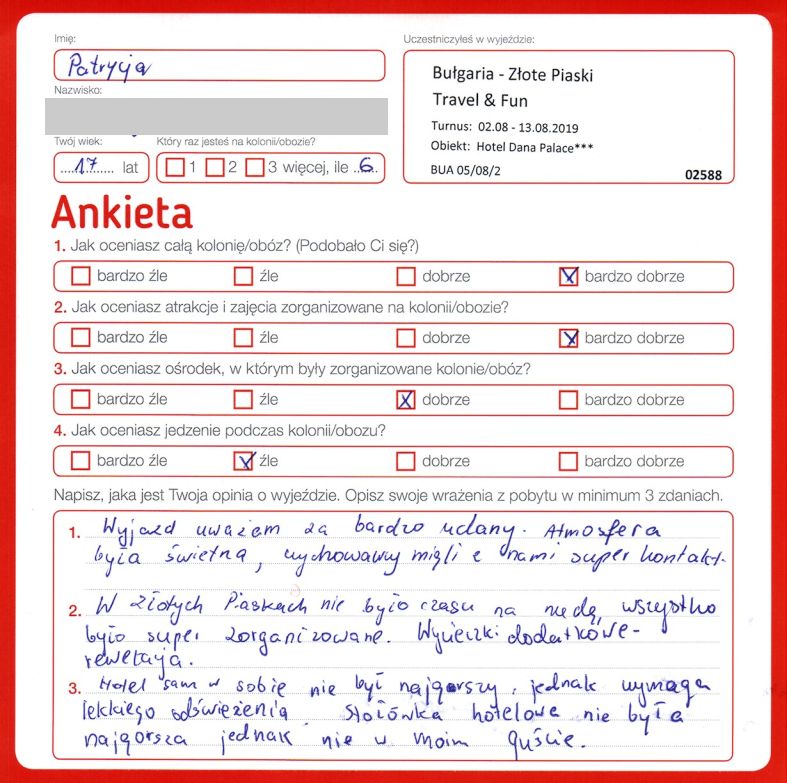 Imię:
Patrycja
Nazwisko:
Twój wiek:
Który raz jesteś na kolonii/obozie?
17 lat
1 2 3 więcej, ile 6
Uczestniczyłeś w wyjeździe:
Bułgaria - Złote Piaski
Travel & Fun
Turnus: 02.08 - 13.08.2019
Obiekt: Hotel Dana Palace***
BUA 05/08/2
02588
Ankieta
1. Jak oceniasz całą kolonię/obóz? (Podobało Ci się?)
bardzo źle źle dobrze bardzo dobrze
2. Jak oceniasz atrakcje i zajęcia zorganizowane na kolonii/obozie?
bardzo źle źle dobrze bardzo dobrze
3. Jak oceniasz ośrodek, w którym były zorganizowane kolonie/obóz?
bardzo źle źle dobrze bardzo dobrze
4. Jak oceniasz jedzenie podczas kolonii/obozu?
bardzo źle źle dobrze bardzo dobrze
Napisz, jaka jest Twoja opinia o wyjeździe. Opisz swoje wrażenia z pobytu w minimum 3 zdaniach.
1. Wyjazd uważam za bardzo udany. Atmosfera
była świetna, wychowawcy mieli z nami super kontakt.
2. W Złotych Piaskach nie było czasu na nudę, wszystko
było super zorganizowane. Wycieczki dodatkowe -
rewelacja.
3. Hotel sam w sobie nie był najgorszy, jednak wymaga
lekkiego odświeżenia. Stołówka hotelowa nie była
najgorsza jednak nie w moim guście.